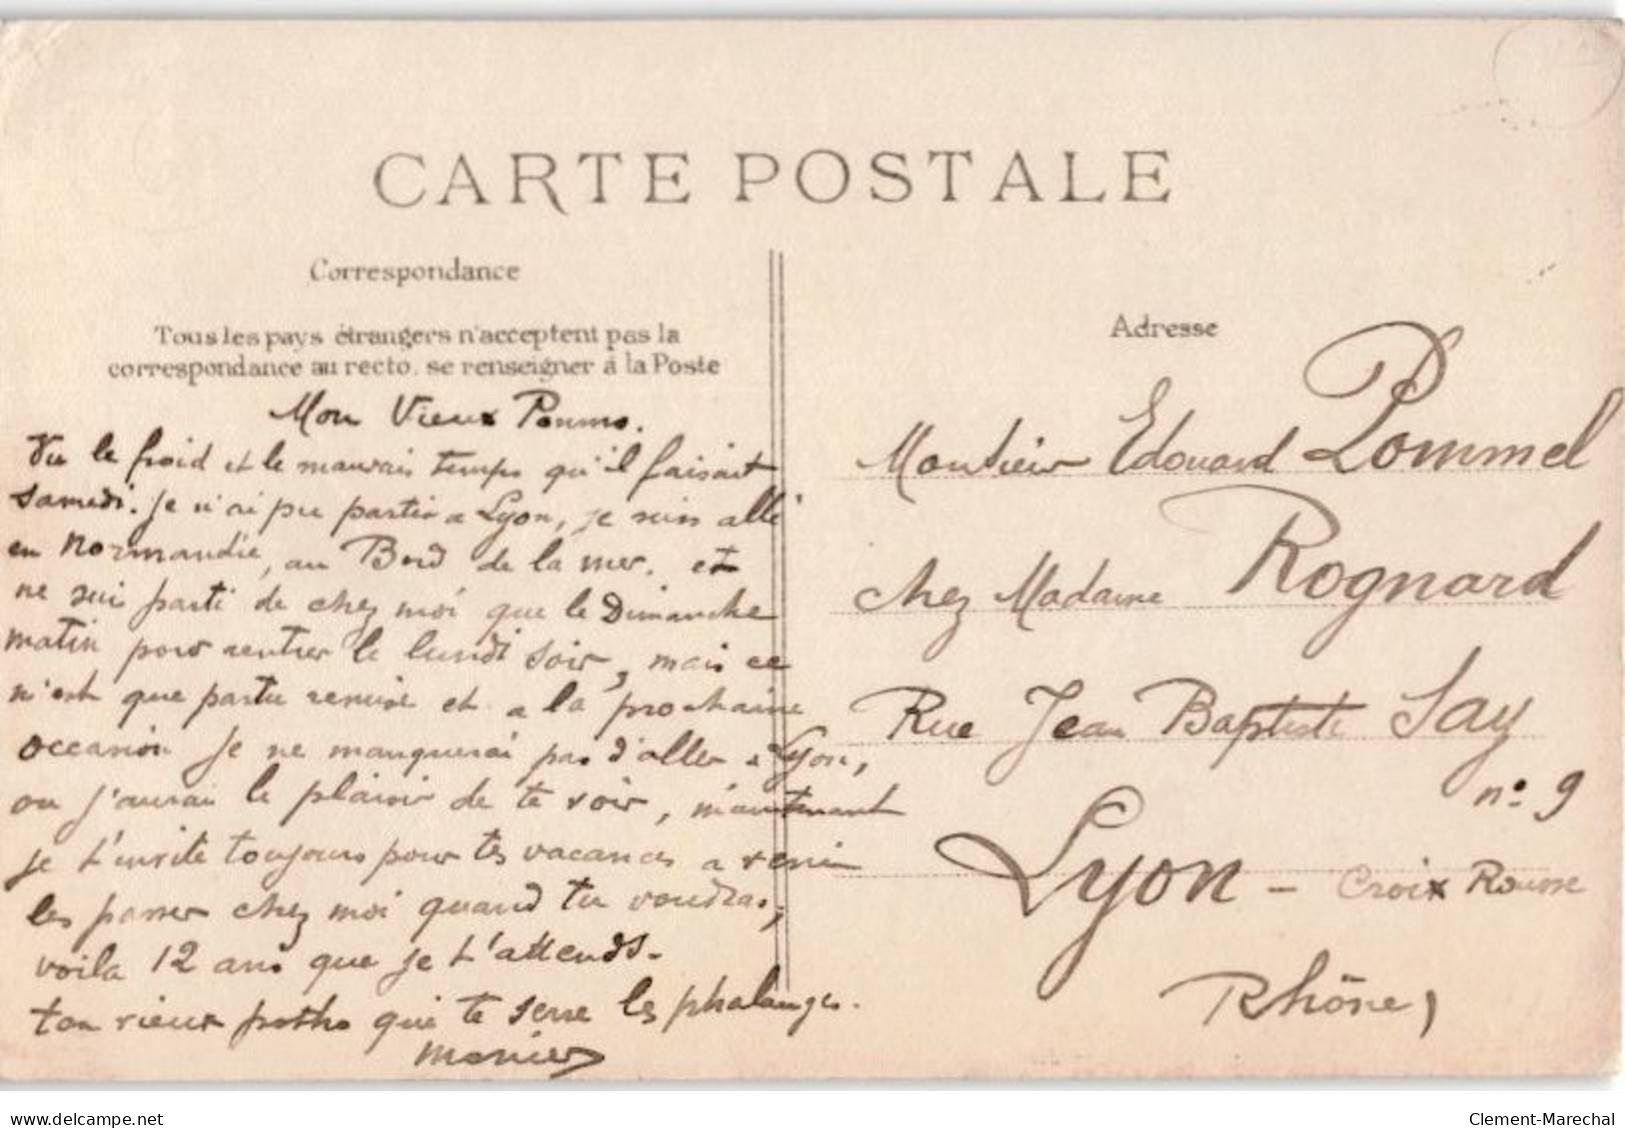 CARTE POSTALE
Correspondance
Tous les pays étrangers n'acceptent pas la
correspondance au recto, se renseigner à la Poste
Mon Vieux Pommo.
Vu le froid et le mauvais temps qu'il faisait
samedi. je n'ai pu partir a Lyon, je suis allé
en Normandie, au Bord de la mer. et
ne sui parti de chez moi que le Dimanche
matin pour rentrer le lundi soir, mais ce
n'est que partie remise et a la prochaine
occasion je ne manquerai pas d'aller a Lyon,
ou j'aurai le plaisir de te voir, maintenant
je t'invite toujours pour tes vacances a venir
les passer chez moi quand tu voudras,
voila 12 ans que je t'attends.
ton vieux potho qui te serre les phalanges.
Monier
Adresse
Monsieur Edouard Pommel
chez Madame Rognard
Rue Jean Baptiste Say
n° 9
Lyon - Croix Rousse
Rhône,
www.delcampe.net
Clement-Marechal